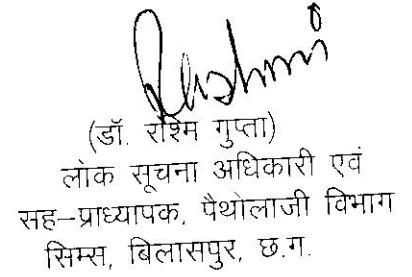 Rashmi
(डॉ. रश्मि गुप्ता)
लोक सूचना अधिकारी एवं
सह-प्राध्यापक, पैथोलाजी विभाग
सिम्स, बिलासपुर, छ.ग.